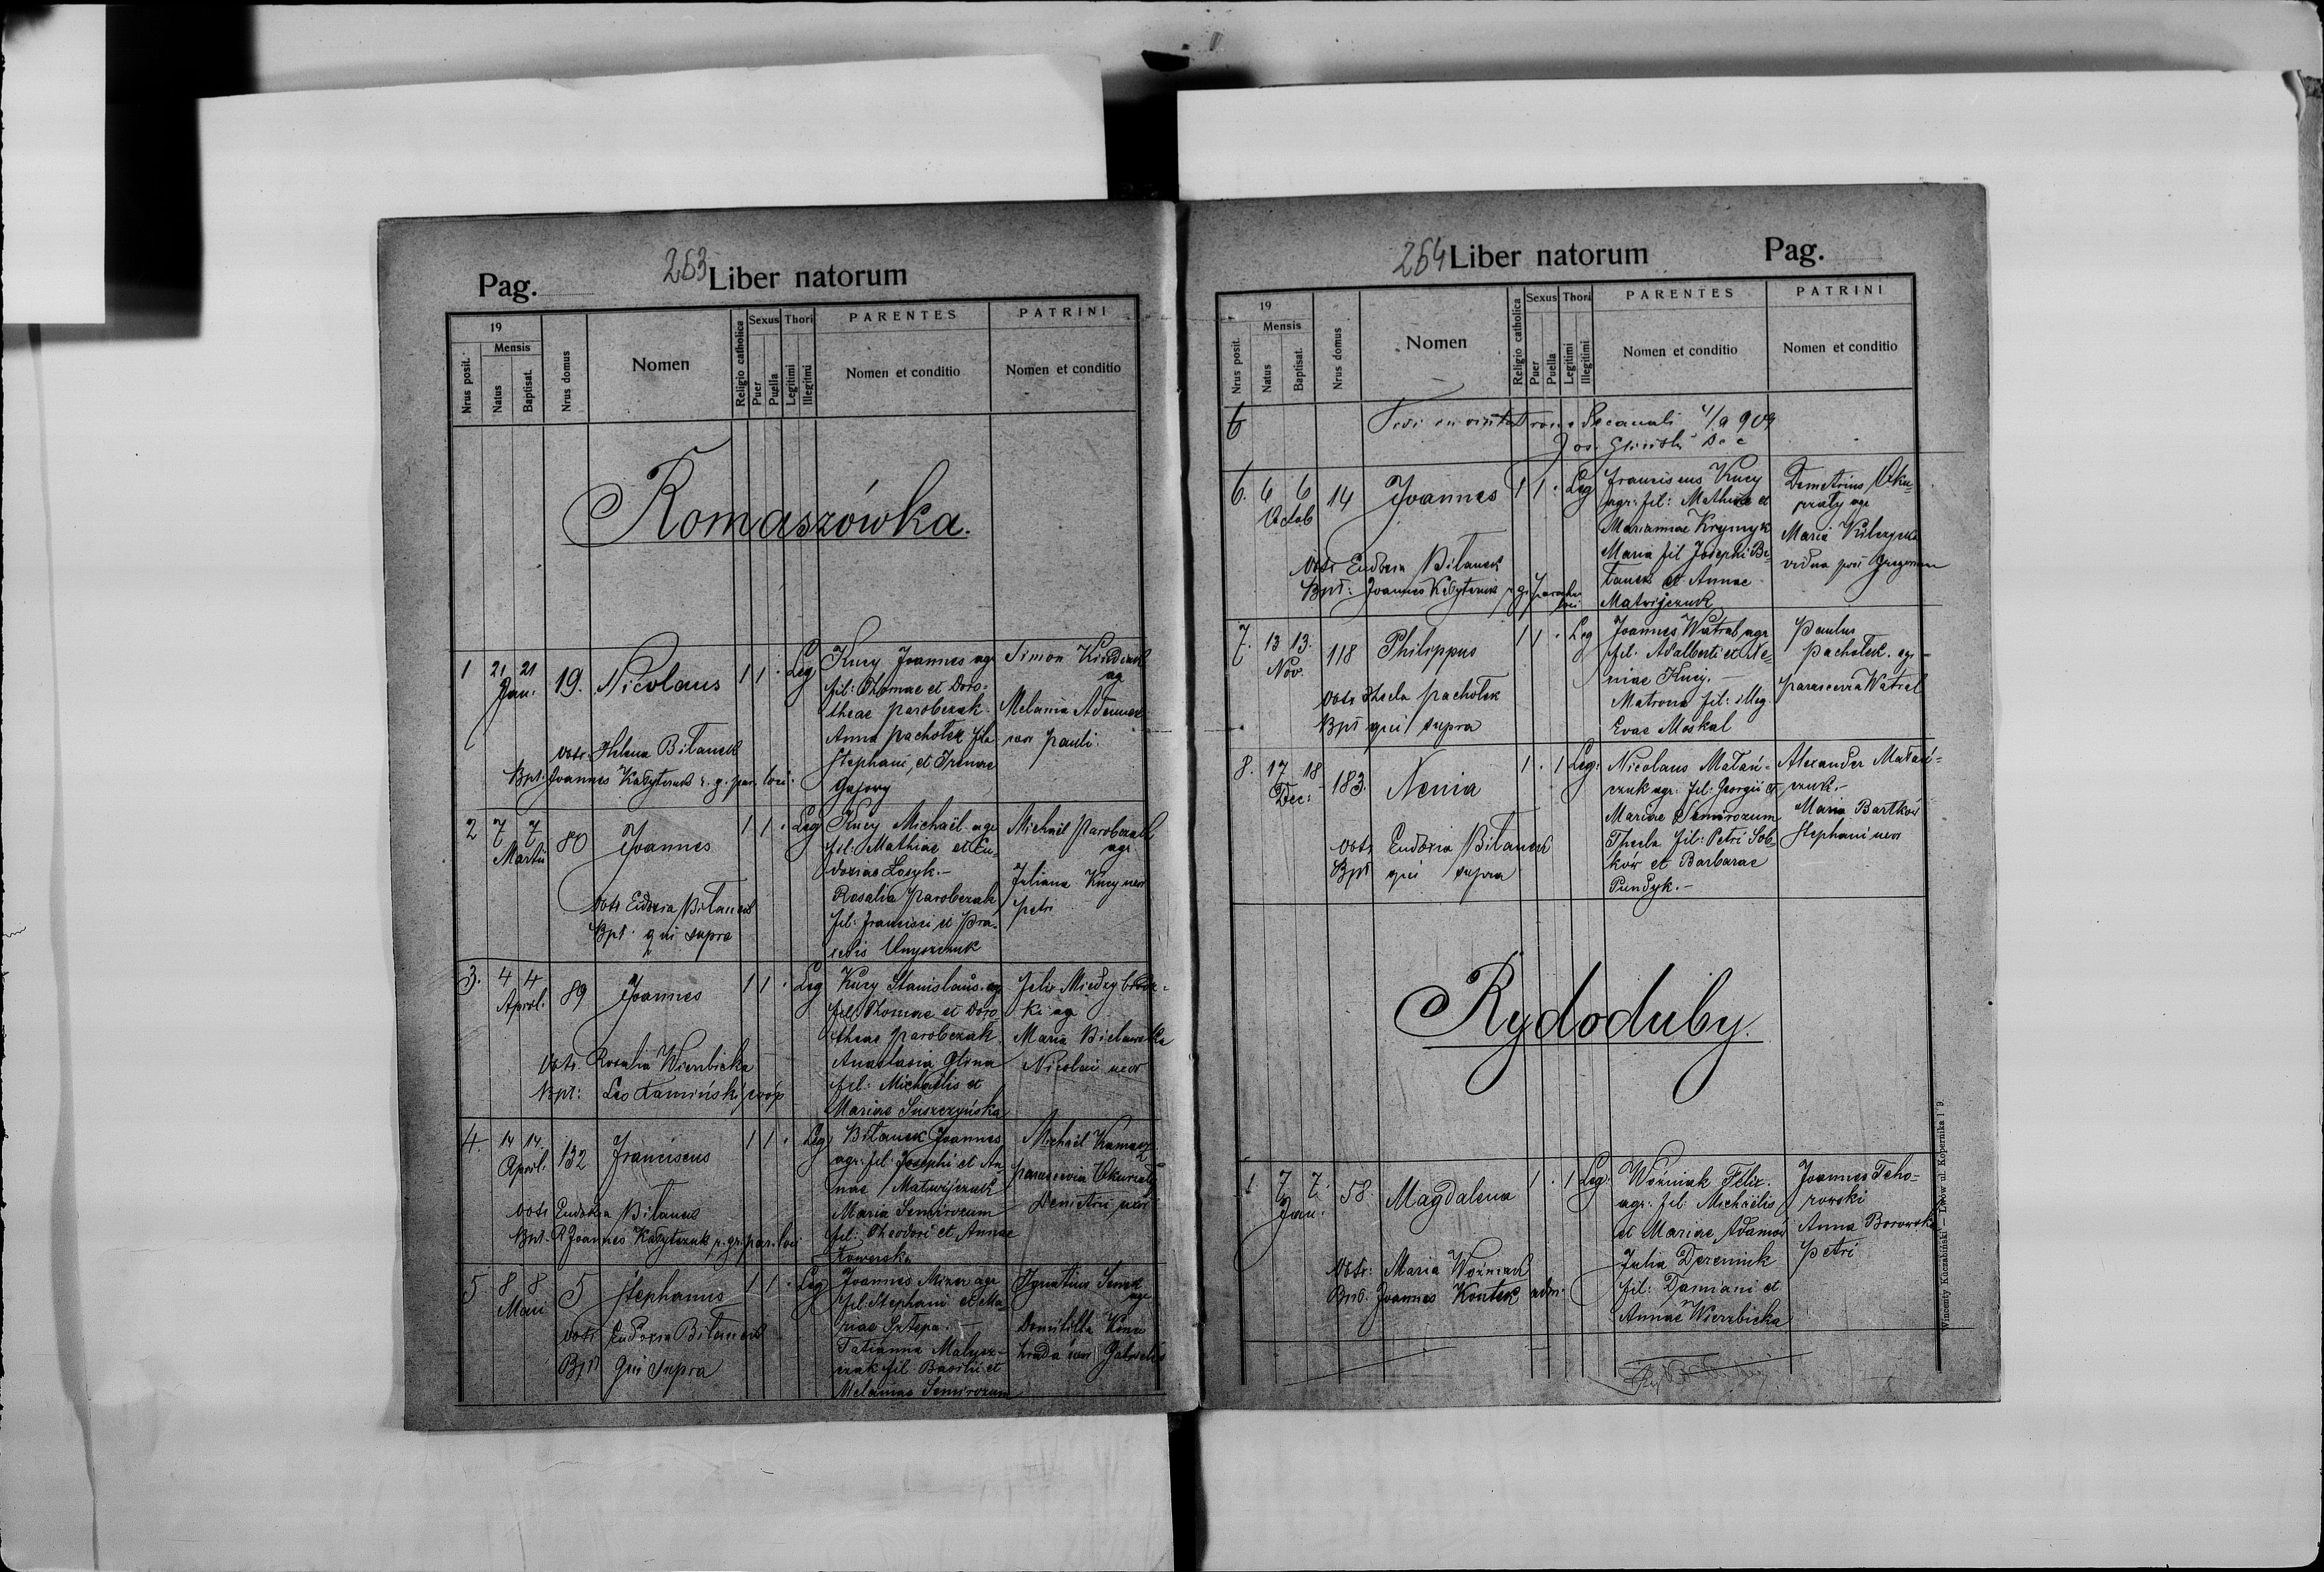 Pag.
263 Liber natorum
19
Mensis
Nrus posit.
Natus
Baptisat.
Nrus domus
Nomen
Religio catholica
Sexus
Puer
Puella
Thori
Legitimi
Illegitmi
PARENTES
Nomen et conditio
PATRINI
Nomen et conditio
Romaszówka.
1 21 21 Jan. 19. Nicolaus 1 1 . Leg
Kucy Joannes agr
fil: Thomae et Doro-
theae Parobczak
Anna Pachołek fila
Stephani, et Irenae
Gajowy
Simon
ag
Melania
uxor Pauli.
obstr. Helena Bilanek
Bpt. Joannes r. g. par. loci.
2 7 7 Martii 80 Joannes 1 1 . Leg
Kucy Michaël agr
fil: Mathiae et Eu-
doxiae Łosyk.-
Rosalia Parobczak
fil: Francisci et Pra-
xedis
Michaël Parobczak
agr
Juliana Kucy uxor
Petri
obstr Eudoxia Bilanek
Bpt. qui supra
3. 4 4 April. 89 Joannes 1 1 . Leg
Kucy Stanislaus. ag
fil: Thomae et Doro-
theae Parobczak
Anastasia Glina
fil: Michaëlis et
Mariae Suszczyńska
Felix Międzybrodz-
ki ag
Maria Bielawska
Nicolai uxor
Obstr. Rosalia Wierzbicka
Bpt: Leo Kamiński coop
4. 14 14. April. 132 Franciscus 1 1 . Leg
Bilanek Joannes
agr. fil: Josephi et An-
nae Matwijczuk
Maria Semirozum
fil: Theodori et Annae
Michaël
Parascevia
Demetrii uxor
obstr Eudoxia Bilanek
Bpt. R Joannes r. gr. par. loci
5 8 8 Maii 5 Stephanus 1 1 . Leg
Joannes agr
fil: Stephani et Ma-
riae Sztepa. -
Tatianna Malysz-
czak fil: Basilii et
Melaniae Semirozum
Ignatius
agr
Domitilla
uxor Gabrielis
obstr Eudoxia Bilanek
Bpt qui supra
264 Liber natorum
Pag.
19
Mensis
Nrus posit.
Natus
Baptisat.
Nrus domus
Nomen
Religio catholica
Sexus
Puer
Puella
Thori
Legitimi
Illegitimi
PARENTES
Nomen et conditio
PATRINI
Nomen et conditio
6
Decanali 909
Jos. Dec
6. 6 6 Octob 14 Joannes 1 1 . Leg
Franciscus Kucy
agr: fil: Mathiae et
Mariannae
Maria fil Josephi Bi-
lanek et Annae
Matwijczuk
Demetrius
agr
Maria
vidua post Gregorium
obstr Eudoxia Bilanek
Bpt: Joannes r. g. paroch. loci
7. 13 13. Nov. 118 Philippus 1 1 . Leg
Joannes Watral agr
fil. Adalberti et Xe-
niae Kucy. -
Matrona fil: illeg
Evae Moskal
Paulus
Pachołek. agr -
Parascevia Watral
obstr Thecla Pachołek
Bpt qui supra
8. 17 18 Dec: 183. Xenia 1 . 1 Leg:
Nicolaus Małań-
czuk agr: fil: Georgii et
Mariae Semirozum
Thecla fil: Petri Sob-
ków et Barbarae
Pundyk. -
Alexander Małań-
czuk. -
Maria Bartków
Stephani uxor
obstr Eudoxia Bilanek
Bpt qui supra
Rydoduby.
1 7 7. Jan. 58. Magdalena 1 . 1 Leg.
Woźniak Felix.
agr: fil: Michaëlis
et Mariae Adamów
Julia Dereniuk
fil: Damiani et
Annae Wierzbicka
Joannes Tcho-
rowski
Anna Borowska
Petri
Obstr: Maria Woźniak
Bpt. Joannes Kontek adm.
Wincenty Kuczabiński — Lwów ul. Kopernika 1 9.